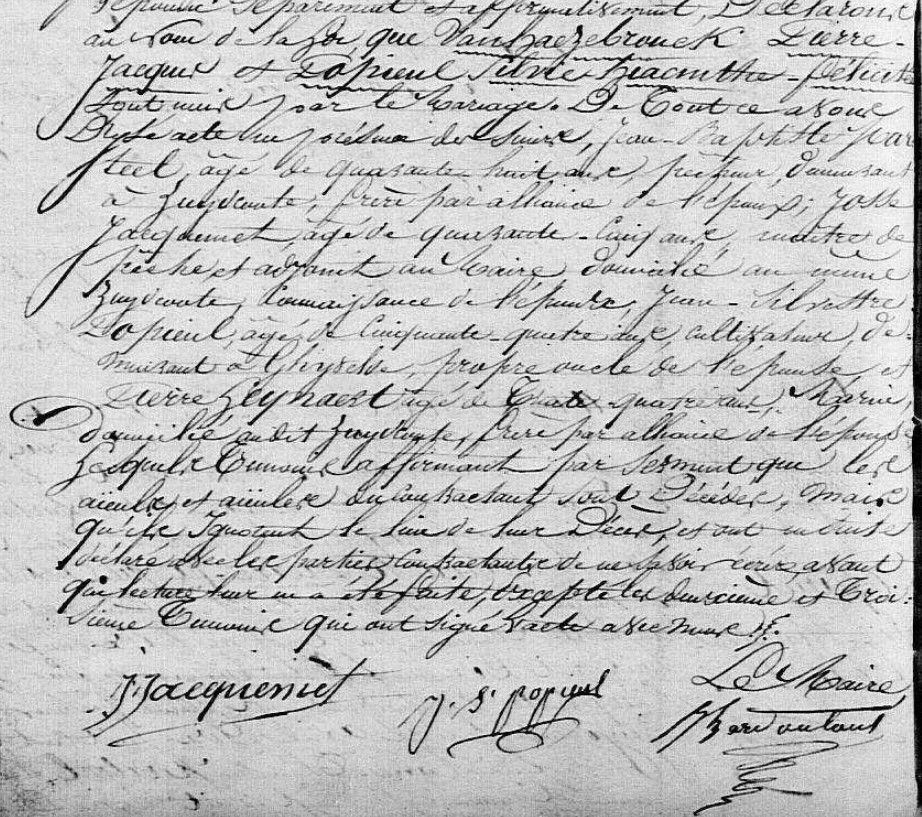 répondu séparément et affirmativement, Déclarons
au nom de la Loi, que Vanhaezebrouck Pierre-
Jacques et Popieul Silvie Hiacinthe-Félicité
sont unis par le mariage. De tout ce avons
Dressé acte en présence des sieurs, Jean-Baptiste
teel, âgé de quarante-huit ans, pêcheur, demeurant
à Zuydcoote, frère par alliance de l'époux; Josse
Jacquemet, âgé de quarante-cinq ans, maître de
pêche, et adjoint au Maire, domicilié au même
Zuydcoote, Connaissance de l'épouse, Jean-Silvestre
Popieul, âgé de Cinquante-quatre ans, cultivateur, de-
meurant à Ghyvelde, propre oncle de l'épouse et
Pierre âgé de Trente-quatre ans, Marin,
domicilié audit Zuydcoote, frère par alliance de l'épouse
Lesquels Témoins affirmant par serment que les
aïeuls et aïeules du Contractant sont Décédés, mais
qu'ils Ignorent le lieu de leur Décès, et ont ensuite
déclaré avec les parties Contractantes de ne savoir écrire, avant
que lecture leur en a été faite, Excepté les deuxième et Troi-
sième Témoins qui ont signé l'acte avec nous
J. Jacquemet
J. S. popieul
Le Maire